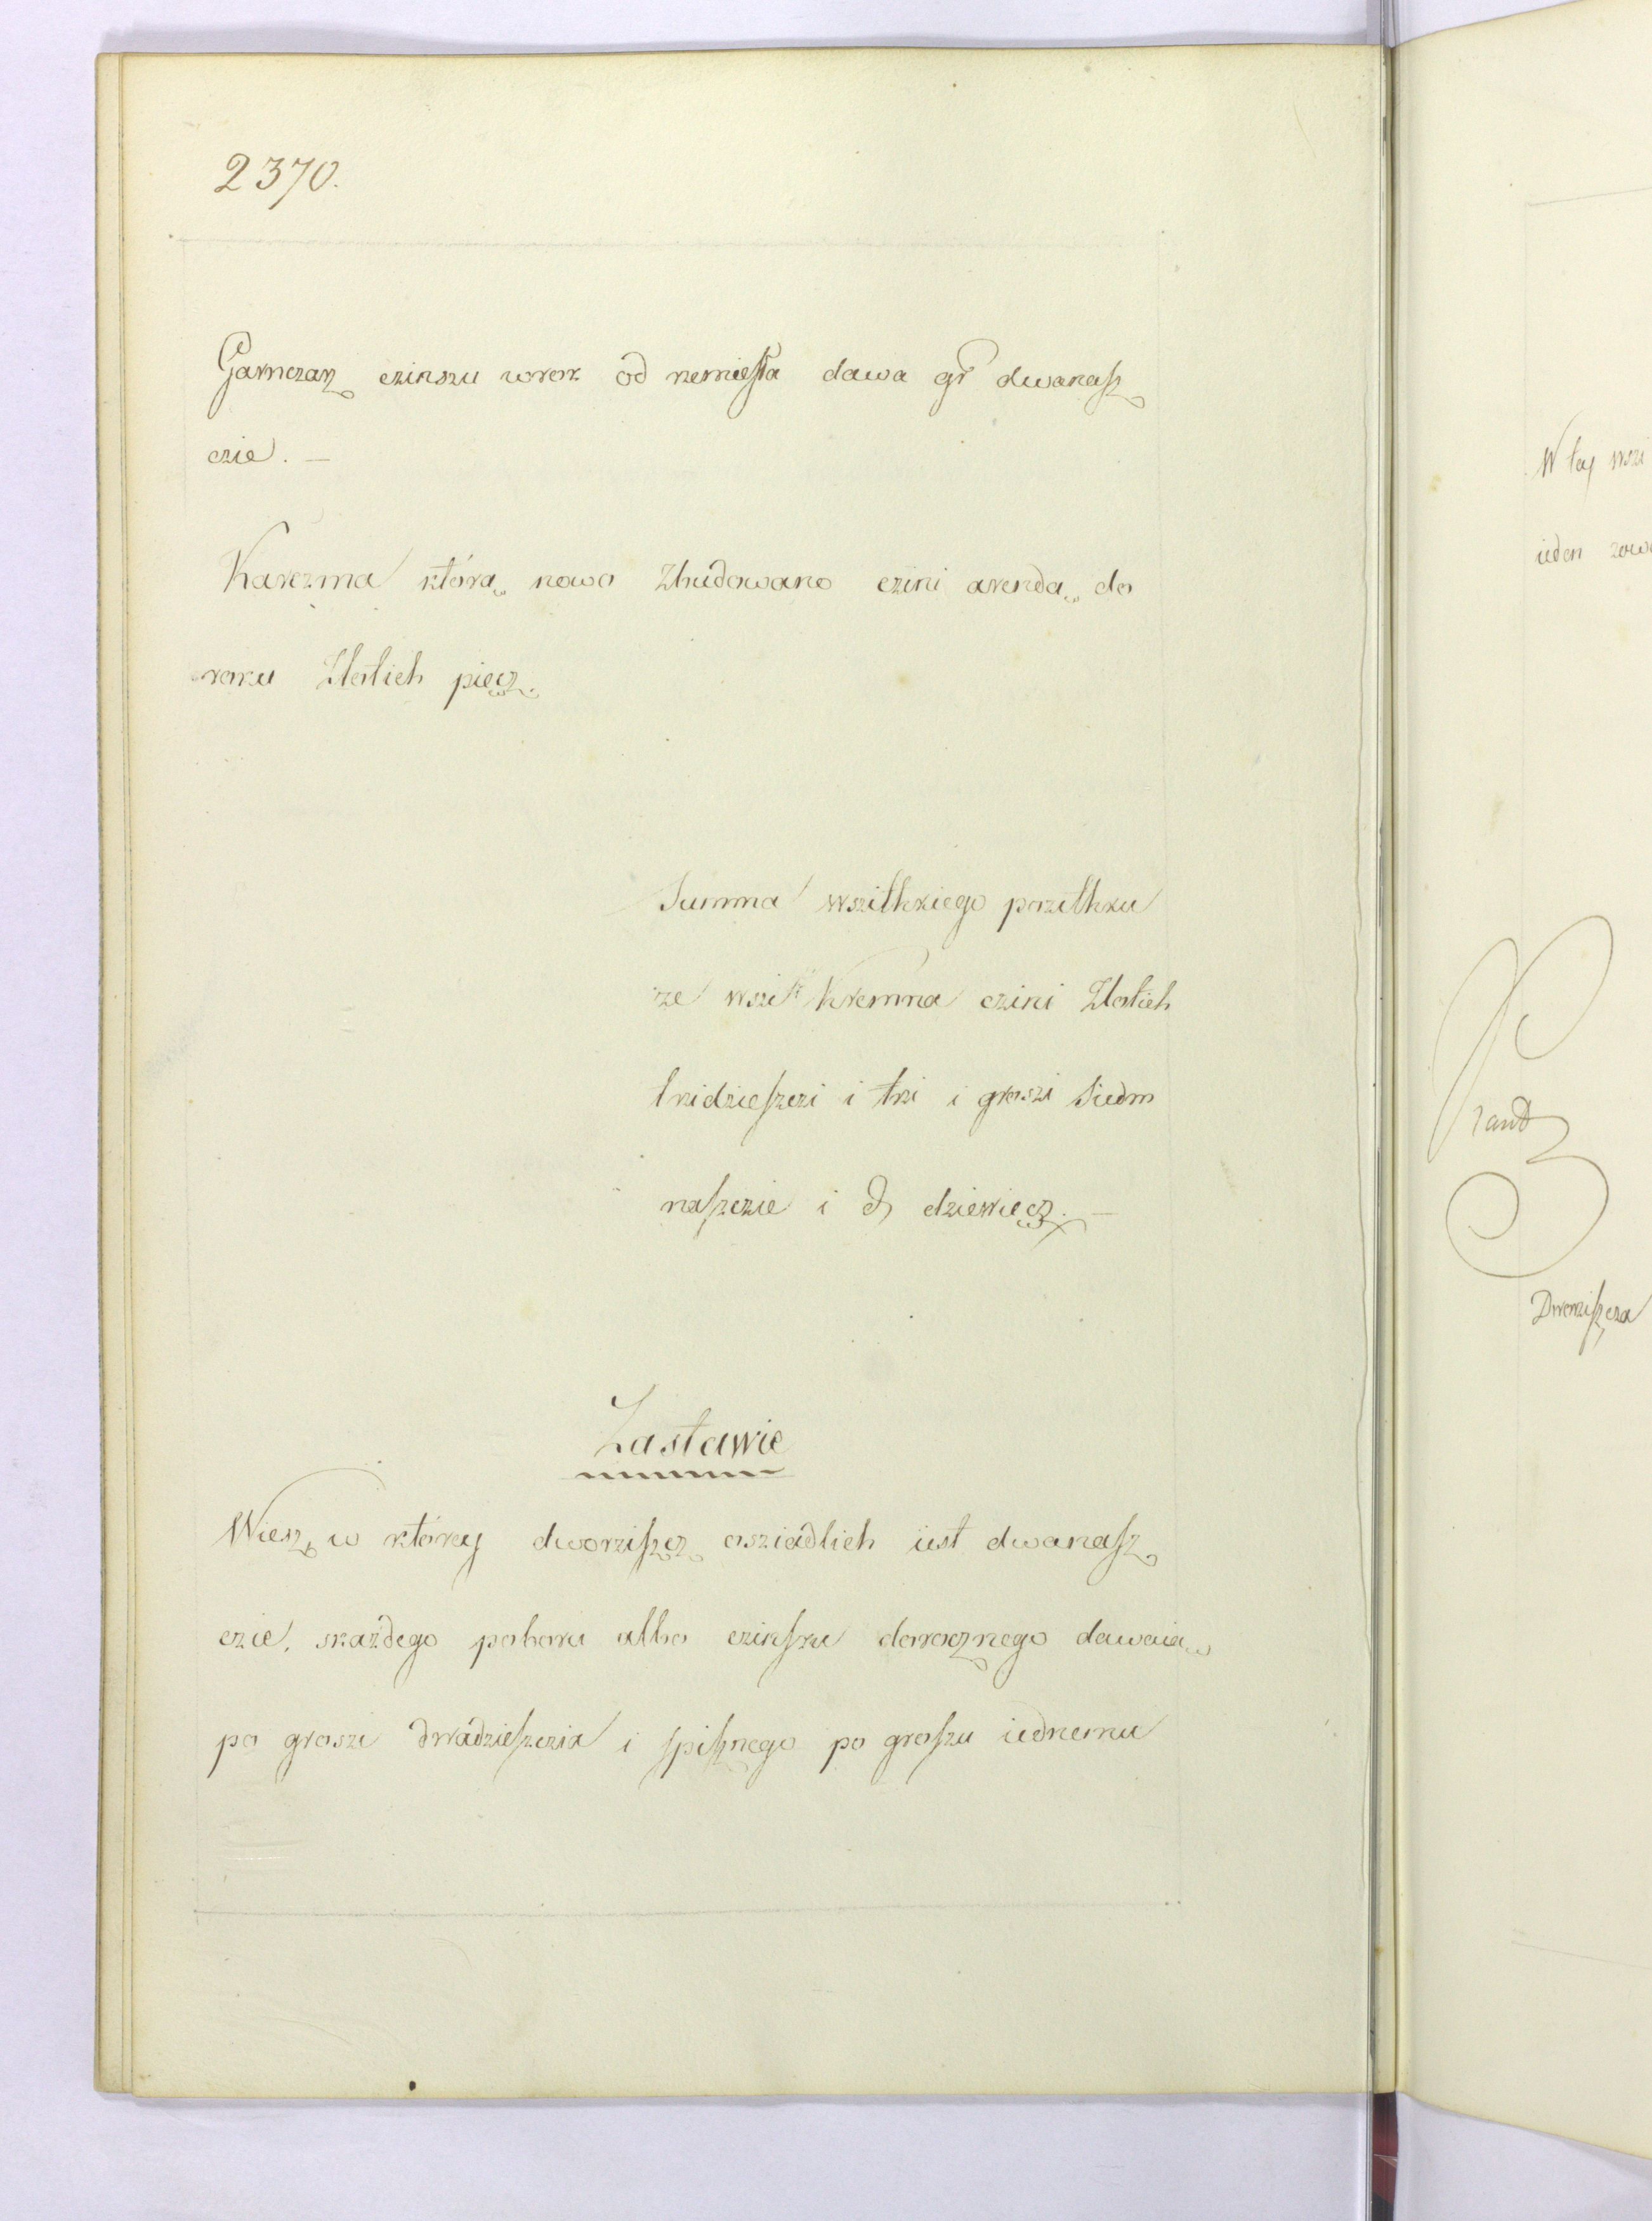 2370.
Garnczarz czinszu wrok od rzemiesła dawa gr dwanasz
czie. —
Karczma którą nowo Zbudowano czini arendą do
roku Zlotich pięcz.
Summa wszithkiego pozithku
ze wsi Kremna czini Zlotich
trzidzieszczi i trzi i groszi Siedm
naszczie i d dziewięcz. —
Zastawie
Wiesz w którey dworziszcz osziadlich iest dwanasz
czie, zkażdego poboru albo czinszu dorocznego dawaią
po groszi dwadzieszczia i spisznego po groszu iednemu
W tey wszi
ieden
Dworziszcza